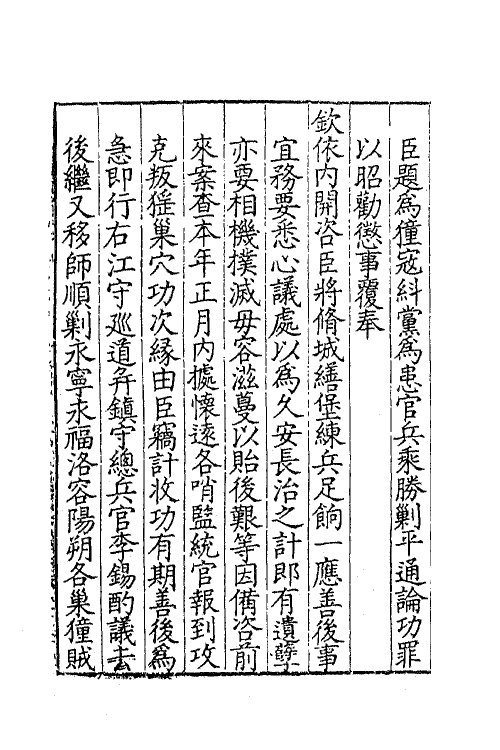 臣題為獞寇糾黨為患官兵乘勝剿平通論功罪
以昭勸懲事覆奉
欽依内開咨臣將脩城繕堡練兵足餉一應善後事
宜務要悉心議處以為久安長治之計即有遺孽
亦要相機撲滅毋容滋蔓以貽後艱等因備咨前
來案查本年正月内據懷遠各哨監統官報到攻
克叛猺巢穴功次緣由臣竊計收功有期善後為
急即行右江守廵道幷鎮守總兵官李錫酌議去
後繼又移師順剿永寧永福洛容陽朔各巢獞賊